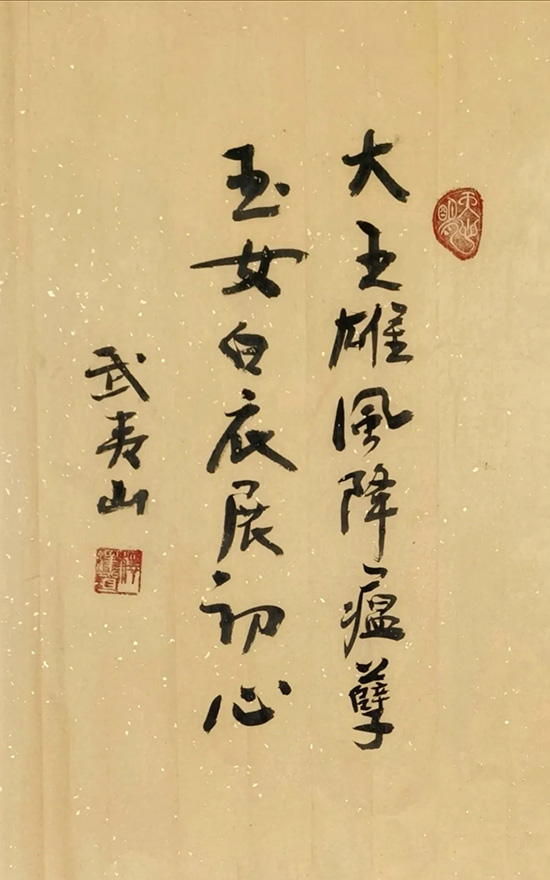 大王雄風降瘟孽
玉女白衣展初心
武夷山